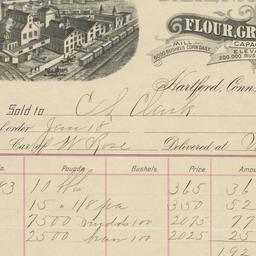 FLOUR, GR
MILL CAPA
5000 BUSHELS CORN DAILY. ELEV
200,000 BUS
Hartford, Conn.
Sold to C S Clark
order Jan 15
Car of W Rose Delivered at
Pounds. Bushels. Price. Am
83 10 365 36
15 350 52
7500 100 2075 77
2500 bran 100 2025 25
192